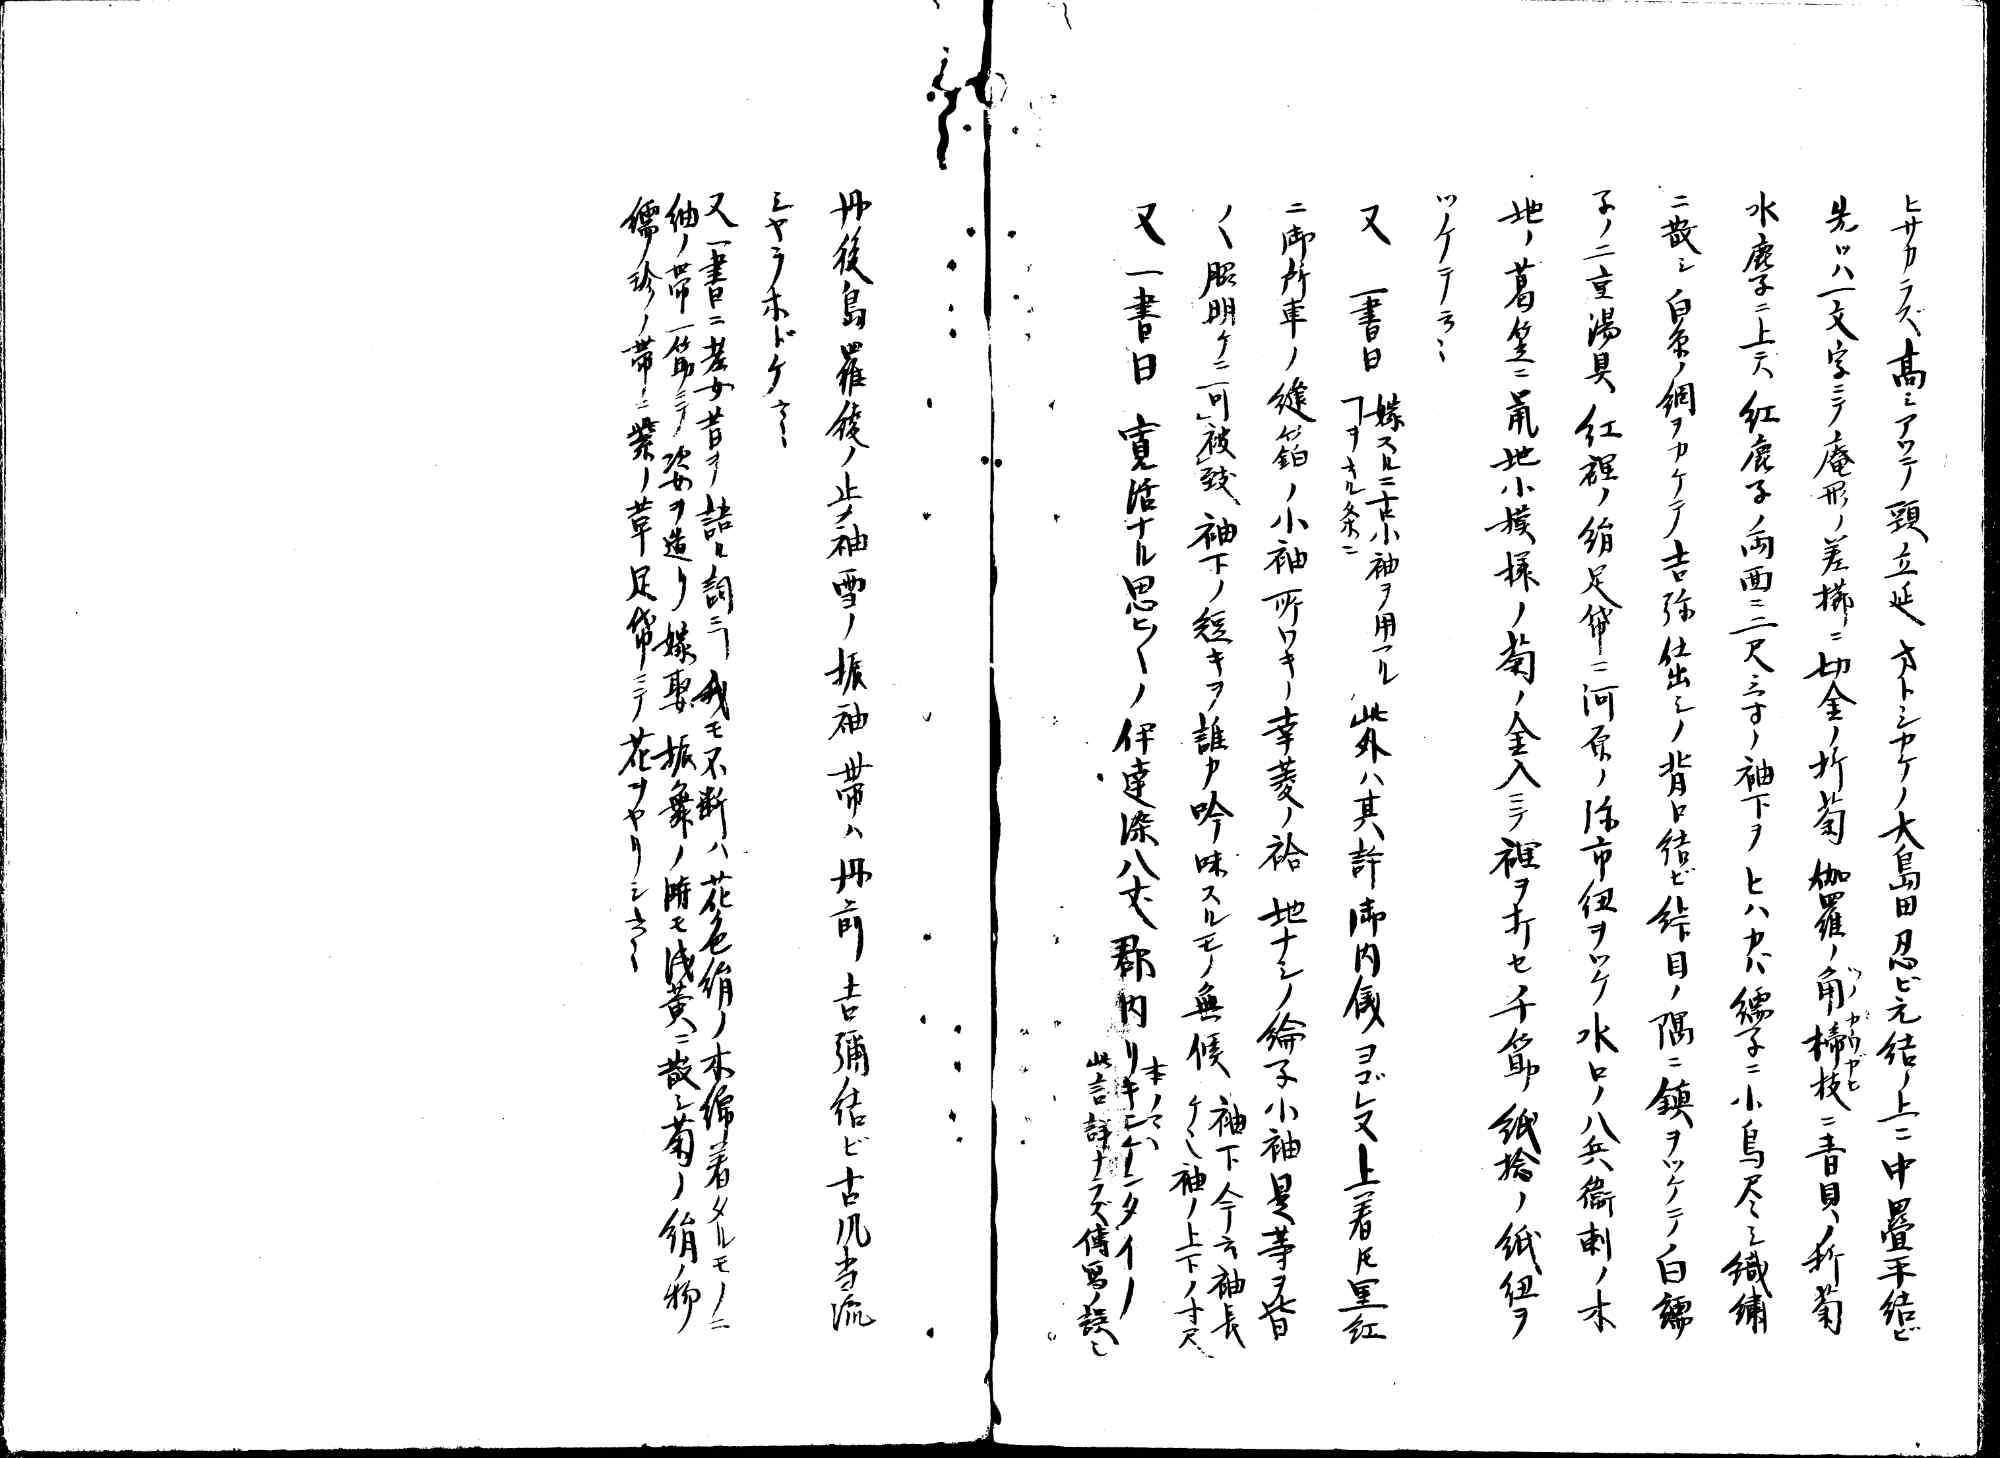 ヒサカラズ高シアツテノ頸立延 大島田忍ビ元結ノ上ニ中畳平結ビ
先ツハ一文字ニテ庵形ノ差櫛ニ切金ノ折菊 伽羅ノ角 枝ニ青貝ノ折菊
水鹿子ニ上ハ紅鹿子ノ両面ニ二尺三寸ノ袖下ヲ ヒハカバ 繻子ニ小鳥尽シ織繍
ニ散シ白糸ノ網ヲカケテ吉弥仕出シノ背口結ビ 目ノ隅ニ鎮ヲツケテ白繻
子ノ二重湯具 紅裡ノ絹足袋ニ河原ノ 市紐ヲツケ水口ノ八兵衞刺ノ木
地ノ葛笠ニ 地小模様ノ菊ノ金入ニテ裡ヲ打セ千筋ノ紙捻ノ紙紐ヲ
ツケテ云々
又 一書曰 嫁スルニ古小袖ヲ用フル
ヿヲキル条ニ 此外ハ其許御内儀ヨゴレ又上着 里紅
ニ御所車ノ縫箔ノ小袖 所ワキノ幸菱ノ袷 地ナシノ綸子小袖是等ヲ皆
〱 明ケニ可被致 袖下ノ短キヲ誰カ吟味スルモノ無候 袖下今云袖長
ケ也袖ノ上下ノ寸尺
又 一書曰 寛活ナル思ヒ〱ノ伊達染八丈 郡内リキ ンタイノ
本ノマヽ
此言詳ナラズ傳冩ノ誤也
丹後島羅綾ノ止メ袖雪ノ振袖 帯ハ丹前 吉彌結ビ古凡当流
シヤラホドケ云々
又一書曰ニ老女昔ヲ語ル詞ニ 我モ不断ハ花色絹ノ木綿着タルモノニ
紬ノ帯一筋ニテ姿ヲ造リ嫁娶振舞ノ時モ浅黄ニ散シ菊ノ絹物
繻 珍ノ帯ニ紫ノ革足袋ニテ花ヲヤリシ云々